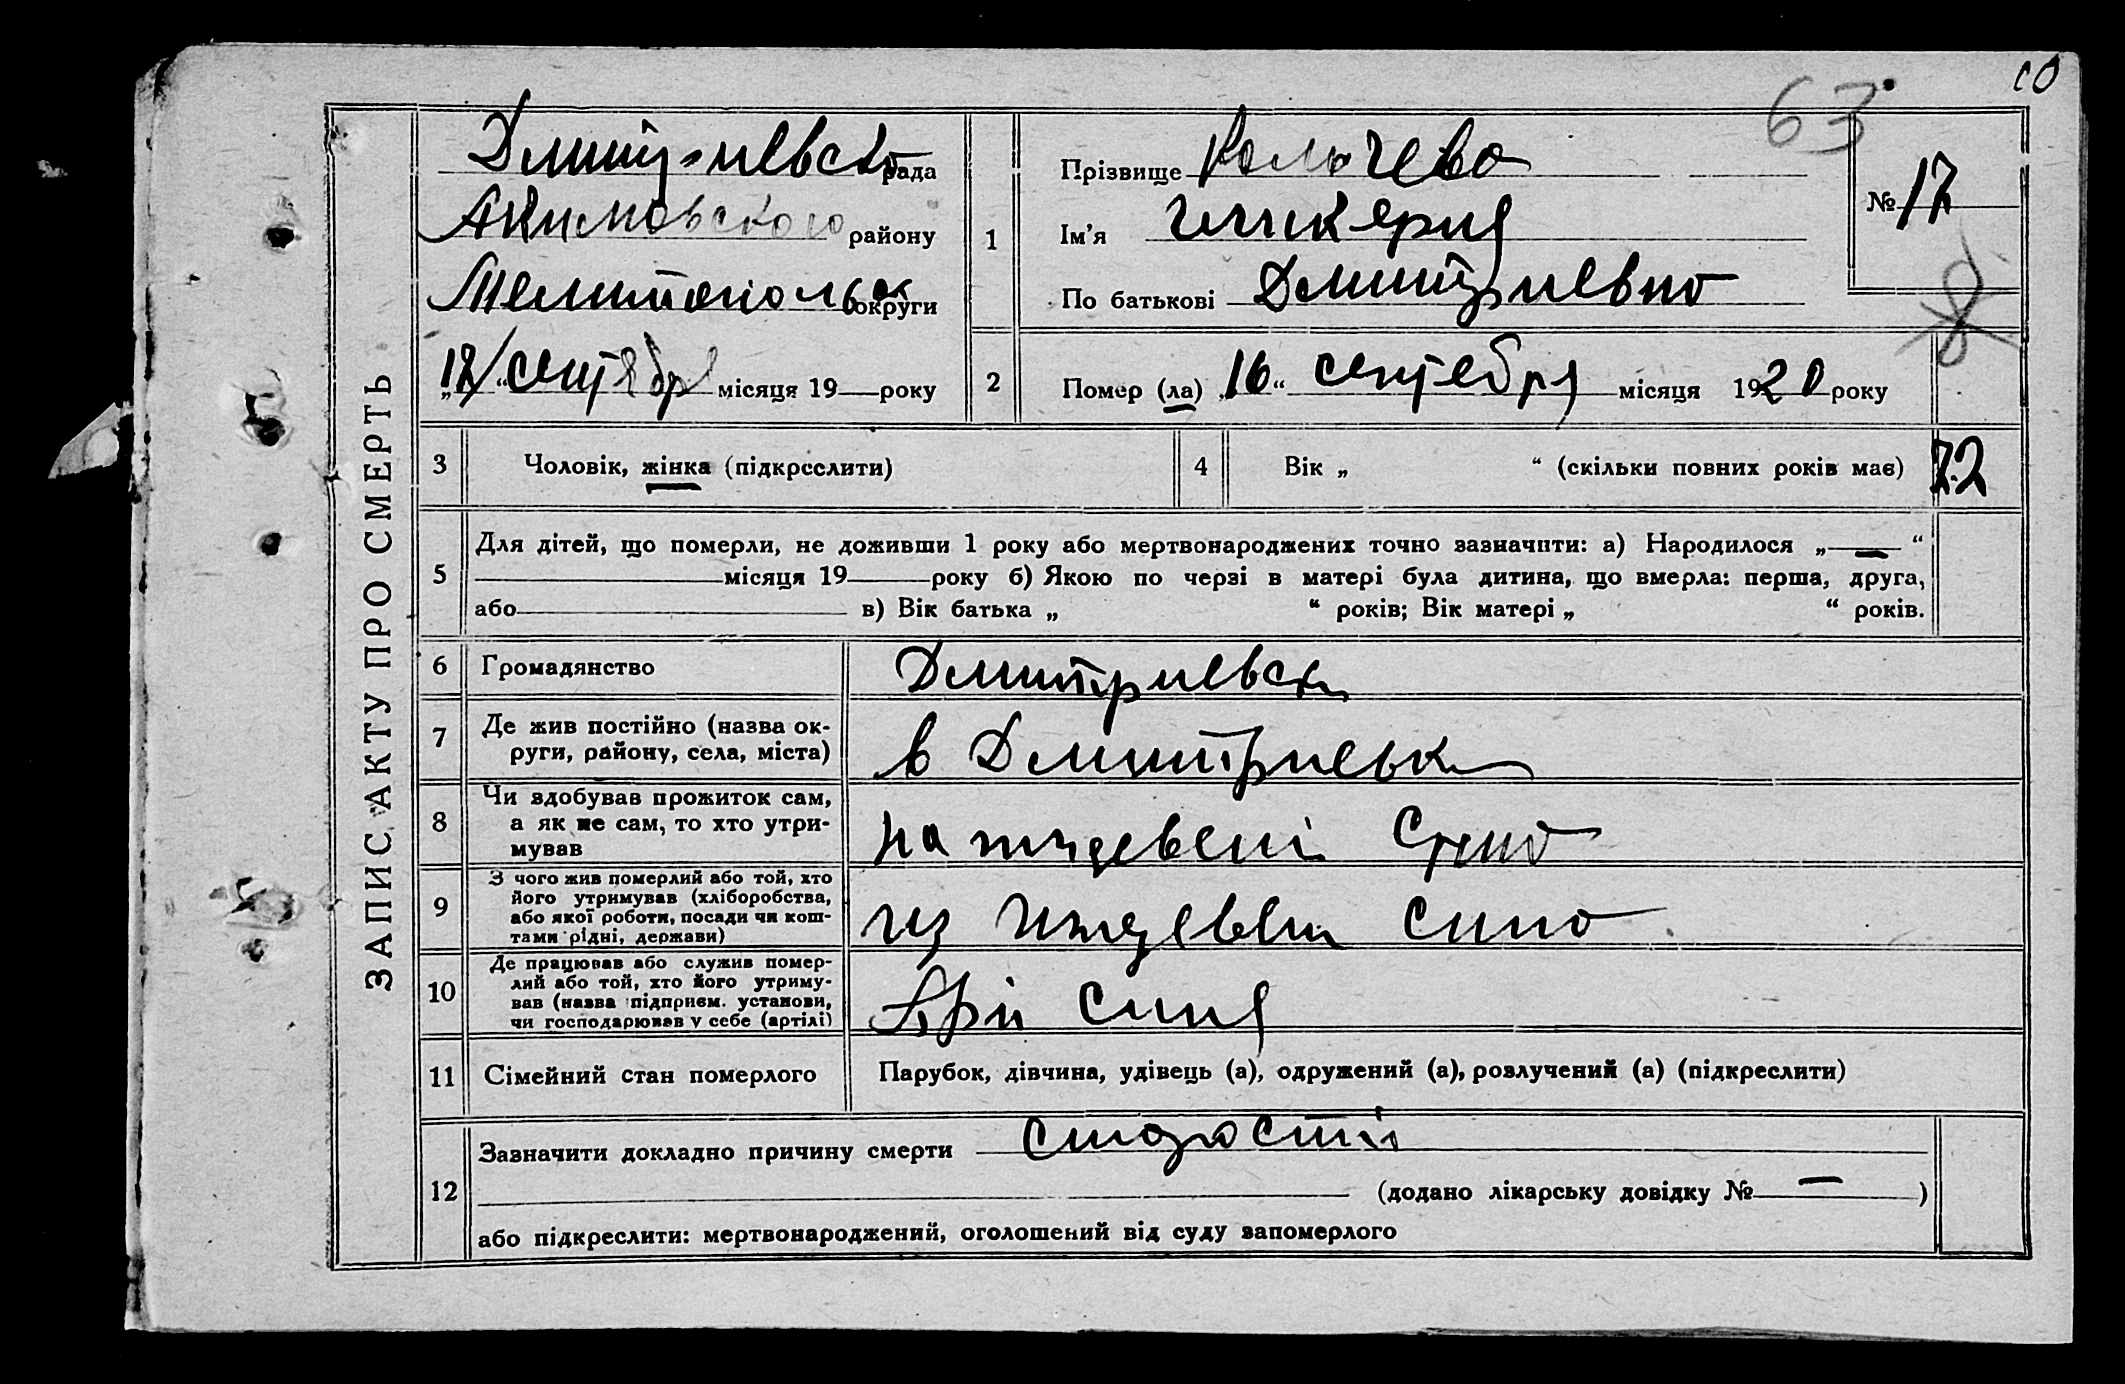 63
ЗАПИС АКТУ ПРО СМЕРТЬ
Дмитриевско рада
Акимовского району
Мелитопольск округи
місяця 19 року
1
Прізвище Колычева
Ім'я Гликерия
По батькові Дмитриевно
№ 17
2
Помер (ла) „16“ сентебря місяця 1920 року
3
Чоловік, жінка (підкреслити)
4
Вік „ “ (скільки повних років має) 72
5
Для дітей, що померли, не доживши 1 року або мертвонароджених точно зазначити: а) Народилося „—“
місяця 19 року б) Якою по черзі в матері була дитина, що вмерла: перша, друга,
або в) Вік батька „ “ років; Вік матері „ “ років.
6
Громадянство
Дмитриевск
7
Де жив постійно (назва ок-
руги, району, села, міста)
в Дмитриевк
8
Чи здобував прожиток сам,
а як не сам, то хто утри-
мував
на
9
З чого жив померлий або той, хто
його утримував (хліборобства,
або якої роботи, посади чи кош-
тами рідні, держави)
из сино
10
Де працював або служив помер-
лий або той, хто його утриму-
вав (назва підприєм. установи,
чи господарював у себе (артілі)
При сині
11
Сімейний стан померлого
Парубок, дівчина, удівець (а), одружений (а), розлучений (а) (підкреслити)
12
Зазначити докладно причину смерти старости
(додано лікарську довідку № — )
або підкреслити: мертвонароджений, оголошений від суду запомерлого